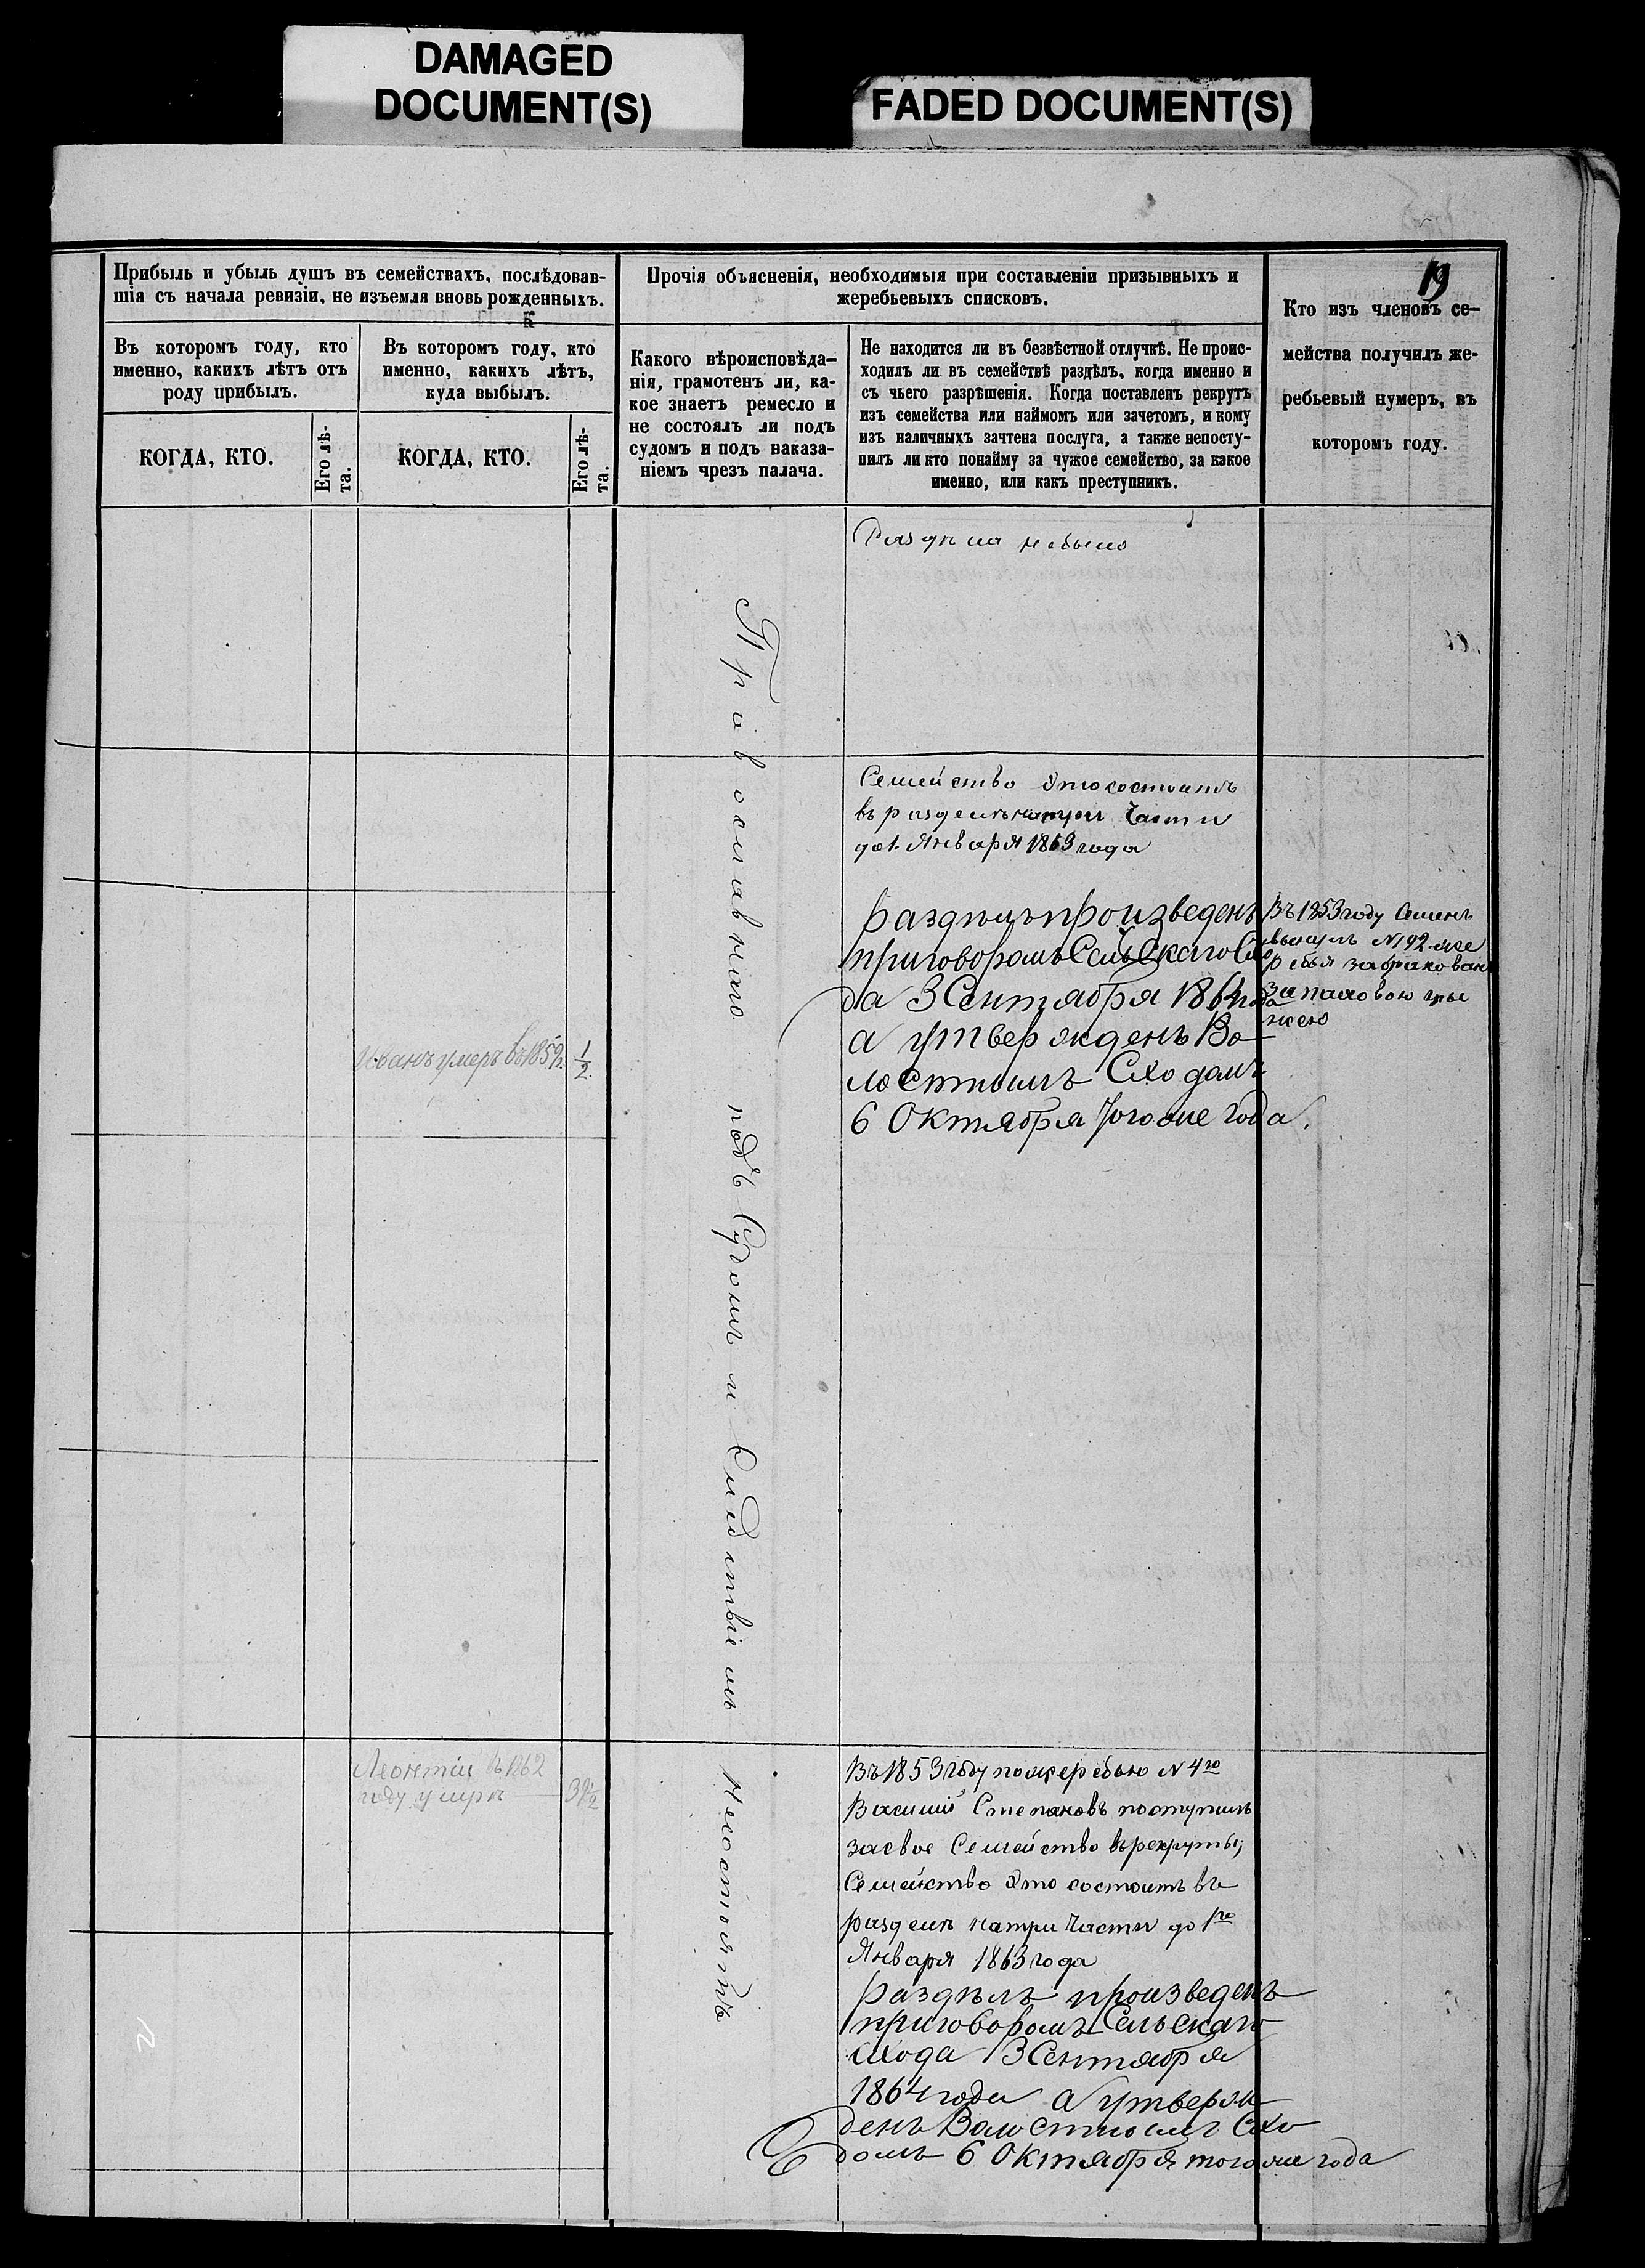 DAMAGED
DOCUMENT(S)
FADED DOCUMENT(S)
19
Прибыль и убыль душъ въ семействахъ, послѣдовав-
шія съ начала ревизіи, не изъемля вновь рожденныхъ.
Прочія объясненія, необходимыя при составленіи призывныхъ и
жеребьевыхъ списковъ.
Кто изъ членовъ се-
мейства получилъ же-
ребьевый нумеръ, въ
которомъ году.
Въ которомъ году, кто
именно, какихъ лѣтъ отъ
роду прибылъ.
Въ которомъ году, кто
именно, какихъ лѣтъ,
куда выбылъ.
Какого вѣроисповѣда-
нія, грамотенъ ли, ка-
кое знаетъ ремесло и
не состоялъ ли подъ
судомъ и подъ наказа-
ніемъ чрезъ палача.
Не находится ли въ безвѣстной отлучкѣ. Не проис-
ходилъ ли въ семействѣ раздѣлъ, когда именно и
съ чьего разрѣшенія. Когда поставленъ рекрутъ
изъ семейства или наймомъ или зачетомъ, и кому
изъ наличныхъ зачтена послуга, а также непосту-
пилъ ли кто понайму за чужое семейство, за какое
именно, или какъ преступникъ.
КОГДА, КТО.
Его лѣ-
та.
КОГДА, КТО.
Его лѣ-
та.
Раздѣла небыло
Православнаго подъ Судомъ и Следствіемъ Несостоятъ
Семейство Это состоитъ
въ разделѣ натри Части
до 1. Января 1863 года
раздѣлъ произведенъ
приговоромъ Сельскаго Схо
да 3 Сентября 1864 года
а утвержденъ Во
лостнымъ Сходомъ
6 Октября того же года.
Въ 1853 году Семенъ
вынулъ N 192 же
ребья забракован
за паховою гры
жею
Иванъ умеръ въ 1859 г. 1/2
Леонтій въ 1862
году умръ 39 1/2
Въ 1853 году пожеребью N 4го
Василій Степановъ поступилъ
засвое Семейство върекруты;
Семейство Это состоитъ въ
разделѣ натри Части до 1го
Января 1863 года
раздѣлъ произведенъ
приговоромъ Сельскаго
схода 3 Сентября
1864 года а утверж
денъ Волостнымъ Схо
домъ 6 Октября того же года